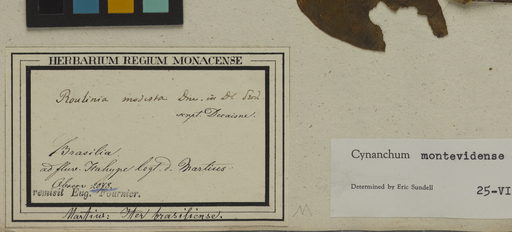 HERBARIUM REGIUM MONACENSE
Roulinia modesta Dne. in DC Prod
scrpt. Decaisne.
Brasilia.
ad fluv. Itahype legt. d. Martius
remisit Eug. Fournier.
Martius: Iter brasiliense.
Cynanchum montevidense
Determined by Eric Sundell
25-VI